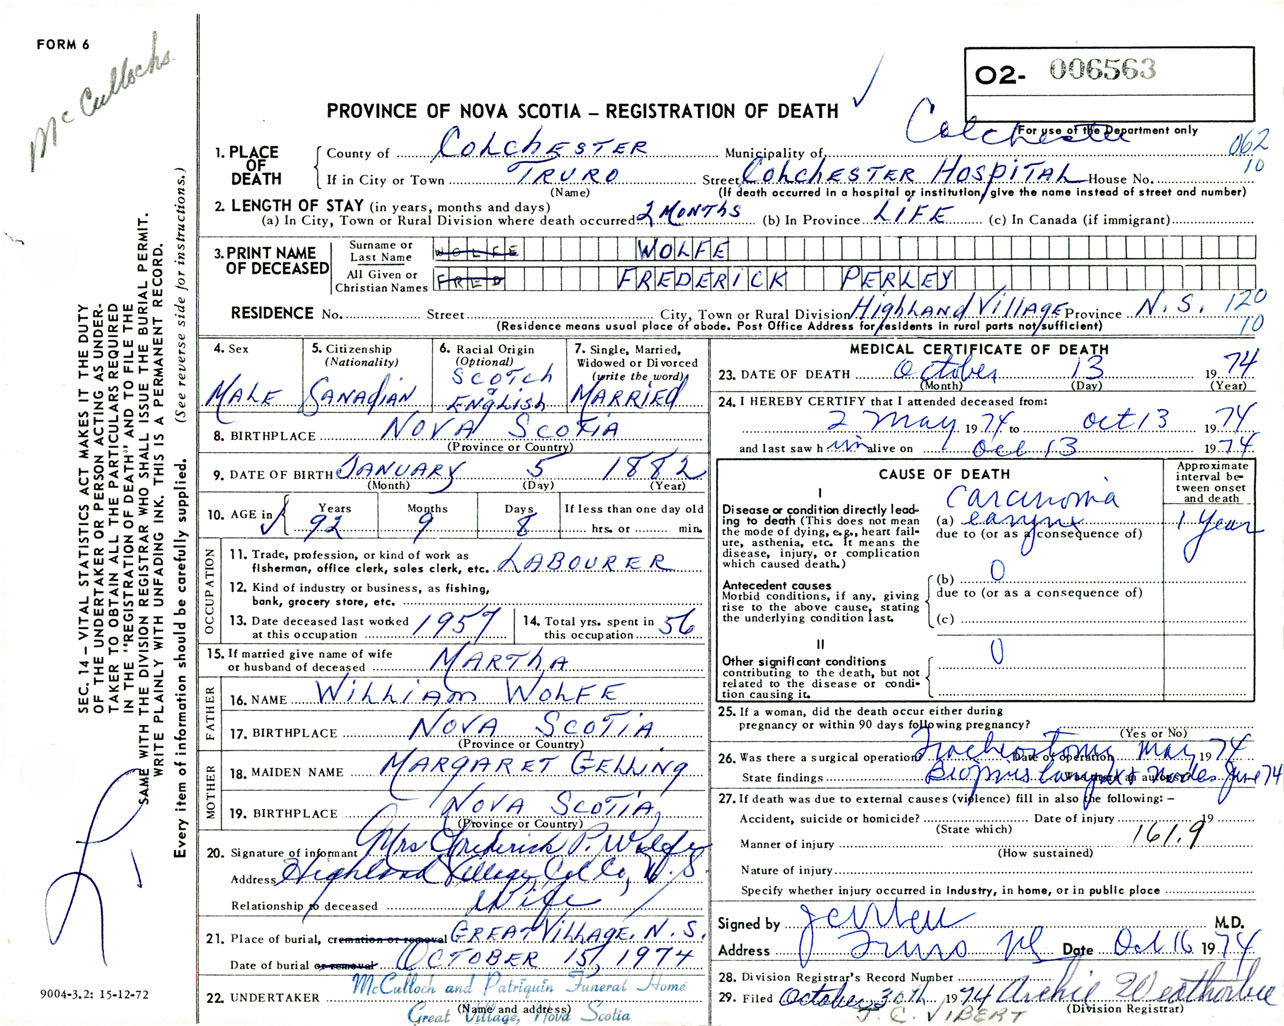 FORM 6
McCullochs.
O2- 006563
PROVINCE OF NOVA SCOTIA – REGISTRATION OF DEATH ✓
For use of the Department only
Colchester
062
10
1. PLACE OF DEATH
County of COLCHESTER Municipality of
If in City or Town TRURO Street COLCHESTER HOSPITAL House No.
(Name) (If death occurred in a hospital or institution, give the name instead of street and number)
2. LENGTH OF STAY (in years, months and days)
(a) In City, Town or Rural Division where death occurred 2 MONTHS (b) In Province LIFE (c) In Canada (if immigrant)
3. PRINT NAME OF DECEASED
Surname or Last Name WOLFE WOLFE
All Given or Christian Names FRED FREDERICK PERLEY
RESIDENCE No. Street City, Town or Rural Division Highland Village Province N.S. 120
10
(Residence means usual place of abode. Post Office Address for residents in rural parts not sufficient)
4. Sex
MALE
5. Citizenship
(Nationality)
CANADIAN
6. Racial Origin
(Optional)
SCOTCH
ENGLISH
7. Single, Married, Widowed or Divorced
(write the word)
MARRIED
8. BIRTHPLACE NOVA SCOTIA
(Province or Country)
9. DATE OF BIRTH JANUARY 5 1882
(Month) (Day) (Year)
10. AGE in Years Months Days If less than one day old
92 9 8 hrs. or min.
OCCUPATION
11. Trade, profession, or kind of work as
fisherman, office clerk, sales clerk, etc. LABOURER
12. Kind of industry or business, as fishing,
bank, grocery store, etc.
13. Date deceased last worked
at this occupation 1957
14. Total yrs. spent in
this occupation 56
15. If married give name of wife
or husband of deceased MARTHA
FATHER
16. NAME WILLIAM WOLFE
17. BIRTHPLACE NOVA SCOTIA
(Province or Country)
MOTHER
18. MAIDEN NAME MARGARET GELLING
19. BIRTHPLACE NOVA SCOTIA
(Province or Country)
20. Signature of informant Mrs Frederick P. Wolfe
Address Highland Village, Col Co, N.S.
Relationship to deceased Wife
21. Place of burial, cremation or removal GREAT VILLAGE, N.S.
Date of burial or removal OCTOBER 15, 1974
22. UNDERTAKER McCulloch and Patriquin Funeral Home
(Name and address)
Great Village, Nova Scotia
MEDICAL CERTIFICATE OF DEATH
23. DATE OF DEATH October 13 1974
(Month) (Day) (Year)
24. I HEREBY CERTIFY that I attended deceased from:
2 May 1974 to Oct 13 1974
and last saw h im alive on Oct 13 1974
CAUSE OF DEATH
Approximate interval between onset and death
I
Disease or condition directly leading to death (This does not mean the mode of dying, e.g., heart failure, asthenia, etc. It means the disease, injury, or complication which caused death.)
carcinoma
(a) larynx 1 Year
due to (or as a consequence of)
Antecedent causes
Morbid conditions, if any, giving rise to the above cause, stating the underlying condition last.
(b) 0
due to (or as a consequence of)
(c)
II
Other significant conditions
contributing to the death, but not related to the disease or condition causing it.
0
25. If a woman, did the death occur either during
pregnancy or within 90 days following pregnancy?
(Yes or No)
26. Was there a surgical operation? Tracheostomy Date of operation May 1974
State findings Biopsies larynx & nodes June 74
27. If death was due to external causes (violence) fill in also the following: –
Accident, suicide or homicide? Date of injury 19
(State which)
Manner of injury 161.9
(How sustained)
Nature of injury
Specify whether injury occurred in industry, in home, or in public place
Signed by M.D.
Address Truro NS Date Oct 16 1974
28. Division Registrar's Record Number
29. Filed October 30th 1974 Archie Weatherbee
(Division Registrar)
J. C. VIBERT
SEC. 14 – VITAL STATISTICS ACT MAKES IT THE DUTY
OF THE UNDERTAKER OR PERSON ACTING AS UNDERTAKER
TO OBTAIN ALL THE PARTICULARS REQUIRED
IN THE "REGISTRATION OF DEATH" AND TO FILE THE
SAME WITH THE DIVISION REGISTRAR WHO SHALL ISSUE THE BURIAL PERMIT.
WRITE PLAINLY WITH UNFADING INK. THIS IS A PERMANENT RECORD.
Every item of information should be carefully supplied. (See reverse side for instructions.)
9004-3.2: 15-12-72